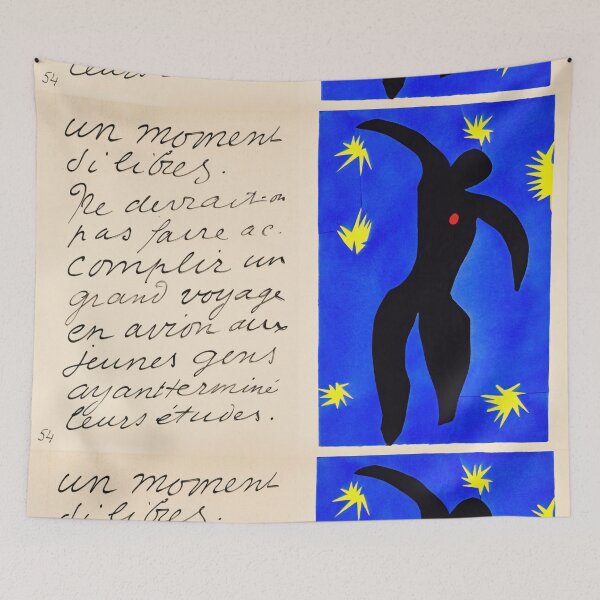 54
un moment
si libres.
Ne devrait-on
pas faire ac-
complir un
grand voyage
en avion aux
jeunes gens
ayant terminé
leurs études.
54
un moment
si libres.